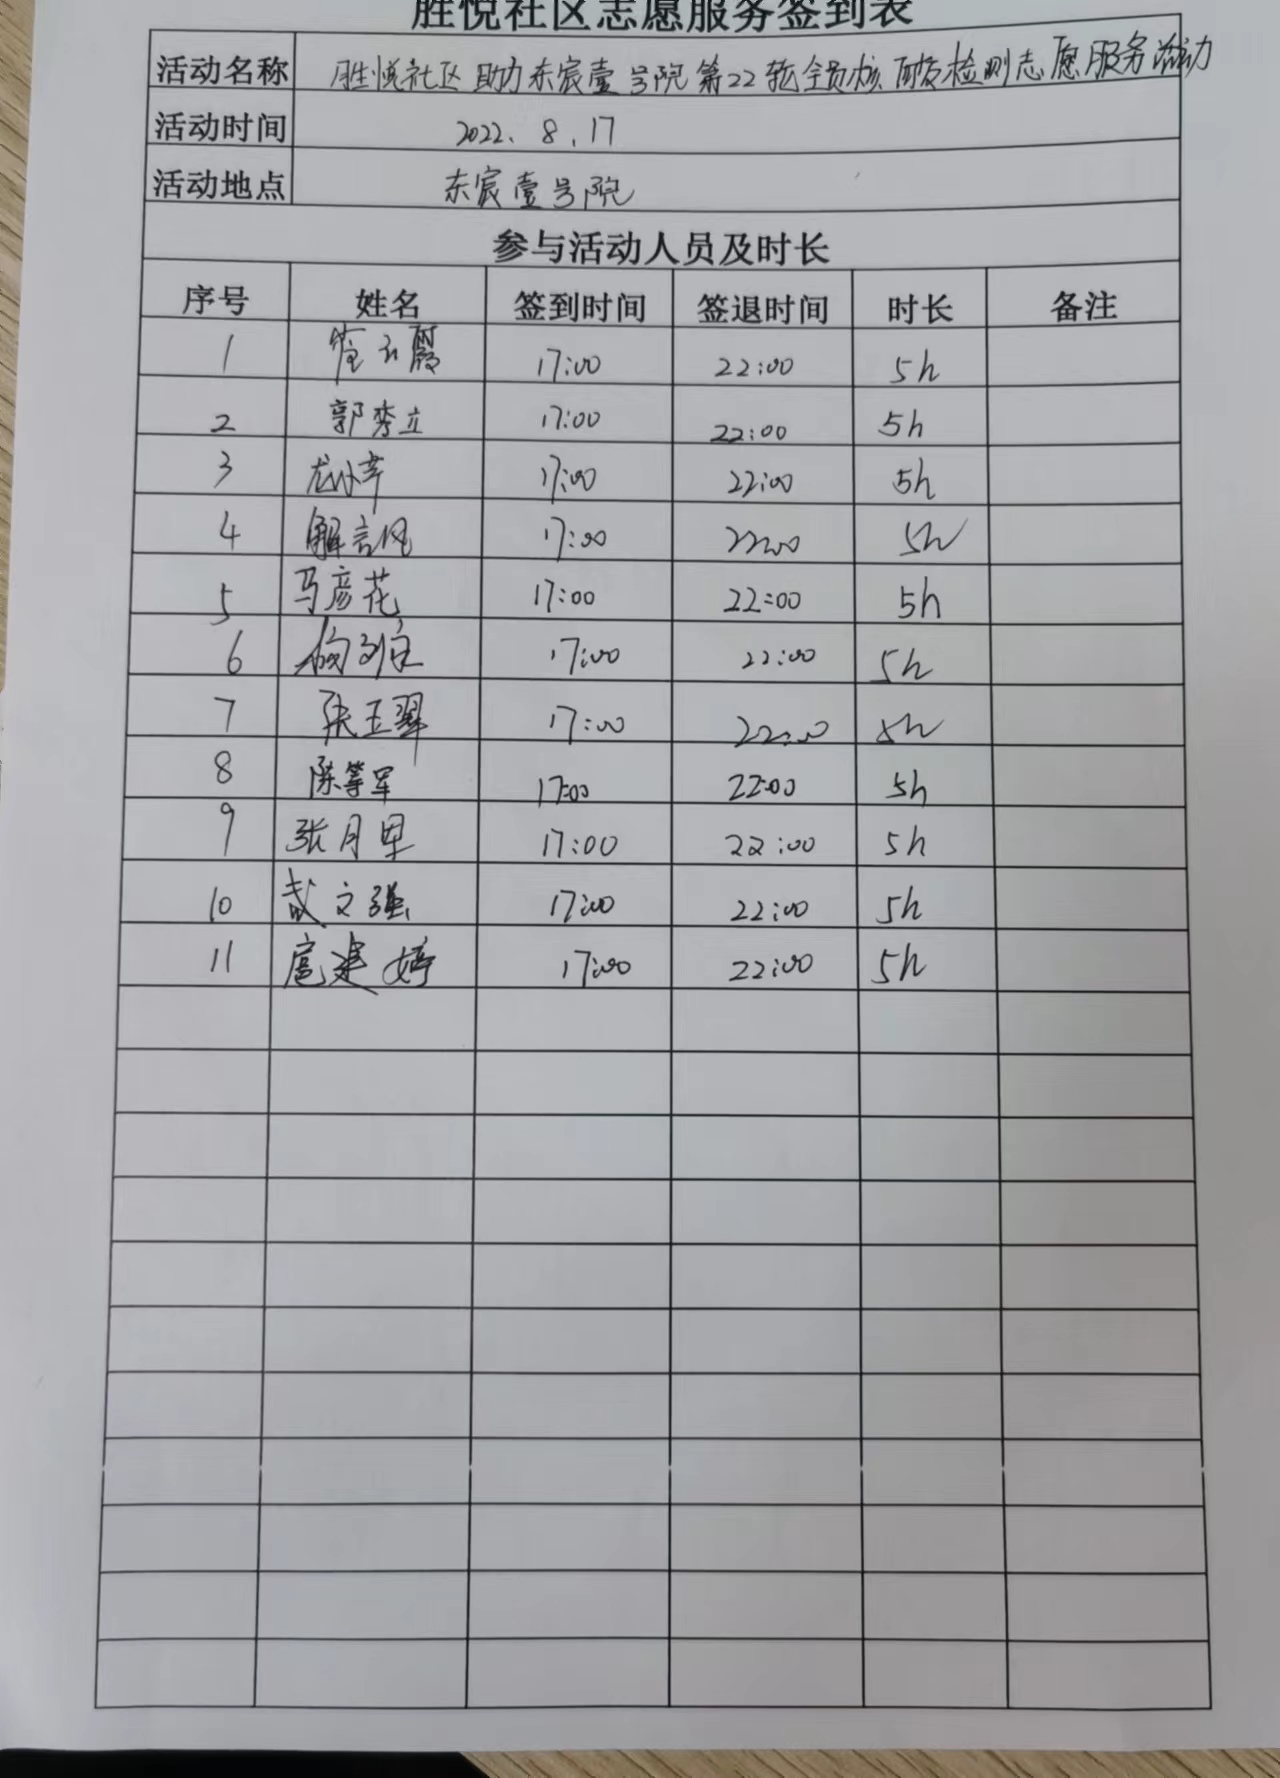 胜悦社区志愿服务签到表
活动名称 胜悦社区助力东宸壹号院第22轮全员核酸检测志愿服务活动
活动时间 2022.8.17
活动地点 东宸壹号院
参与活动人员及时长
序号 姓名 签到时间 签退时间 时长 备注
1 17:00 22:00 5h
2 郭秀立 17:00 22:00 5h
3 17:00 22:00 5h
4 17:00 22:00 5h
5 马彦花 17:00 22:00 5h
6 17:00 22:00 5h
7 张玉翠 17:00 22:00 5h
8 陈等军 17:00 22:00 5h
9 张月 17:00 22:00 5h
10 文强 17:00 22:00 5h
11 扈建婷 17:00 22:00 5h